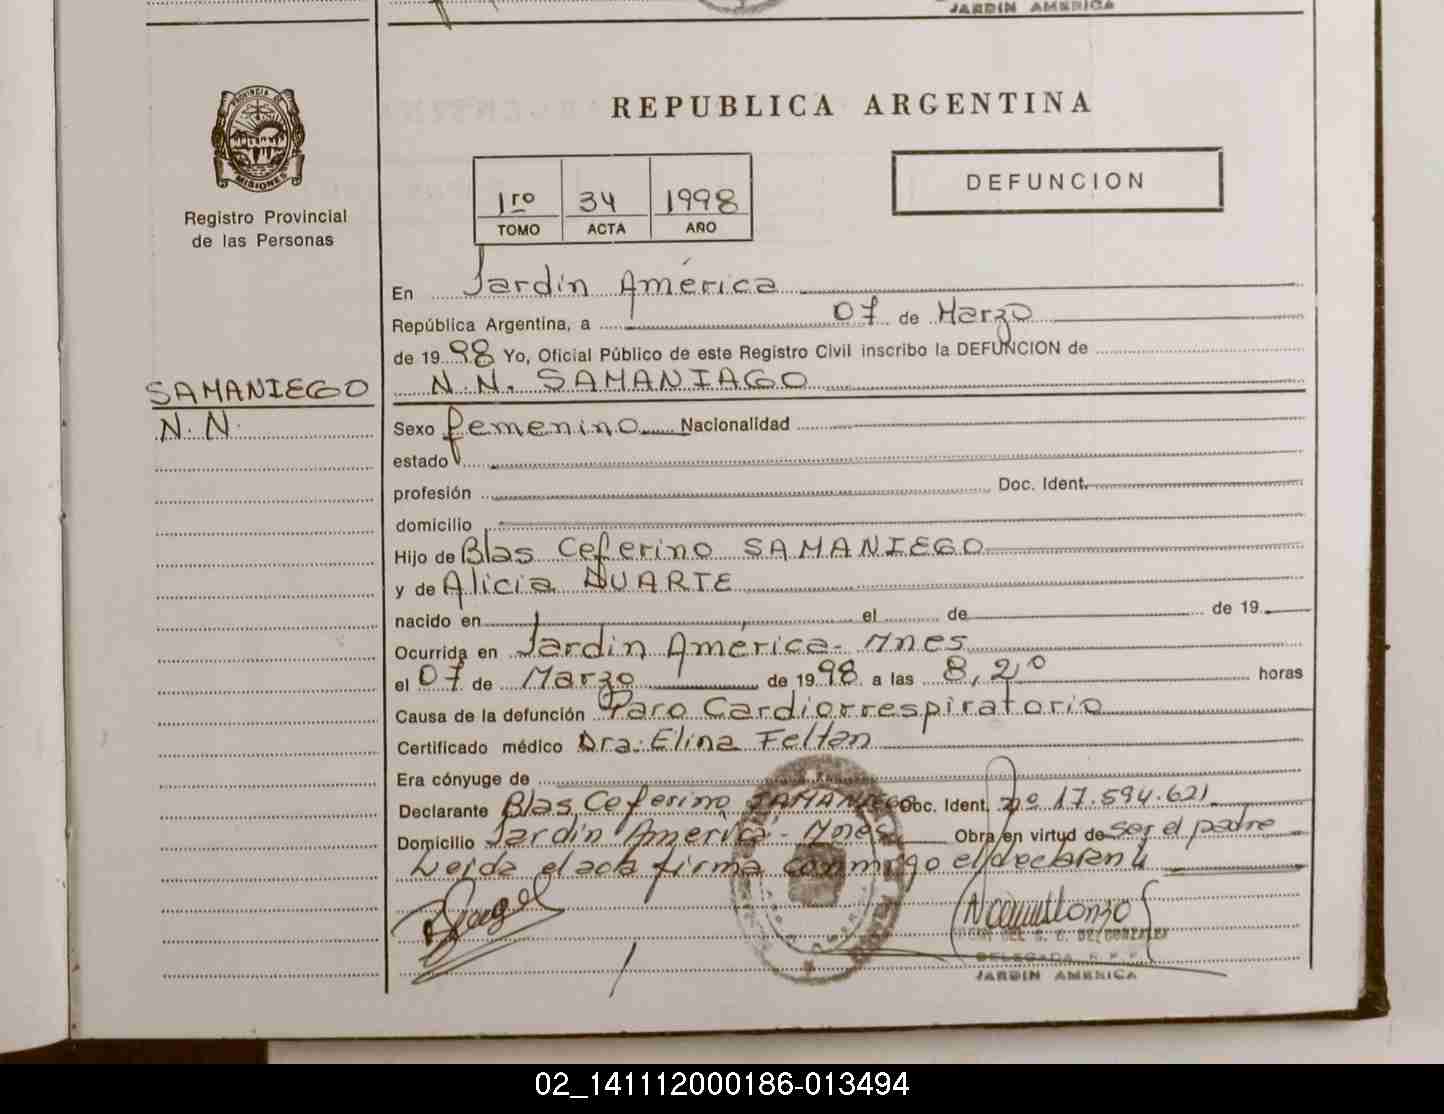 JARDIN AMERICA
PROVINCIA DE
MISIONES
Registro Provincial
de las Personas
REPUBLICA ARGENTINA
1ro 34 1998
TOMO ACTA AÑO
DEFUNCION
En Jardín América
República Argentina, a 07 de Marzo
de 1998 Yo, Oficial Público de este Registro Civil inscribo la DEFUNCION de
N.N. SAMANIAGO
SAMANIEGO
N.N.
Sexo femenino Nacionalidad
estado
profesión Doc. Ident.
domicilio
Hijo de Blas Ceferino SAMANIEGO
y de Alicia DUARTE
nacido en el de de 19
Ocurrida en Jardín América - Mnes
el 07 de Marzo de 1998 a las 8,20 horas
Causa de la defunción Paro Cardiorrespiratorio
Certificado médico Dra: Elina Feltan
Era cónyuge de
Declarante Blas Ceferino SAMANIEGO Doc. Ident. nº 17.594.621
Domicilio Jardín América - Mnes Obra en virtud de ser el padre
Leida el acta firma conmigo el declarante
DELEGADA R.P.P.
JARDIN AMERICA
02_141112000186-013494